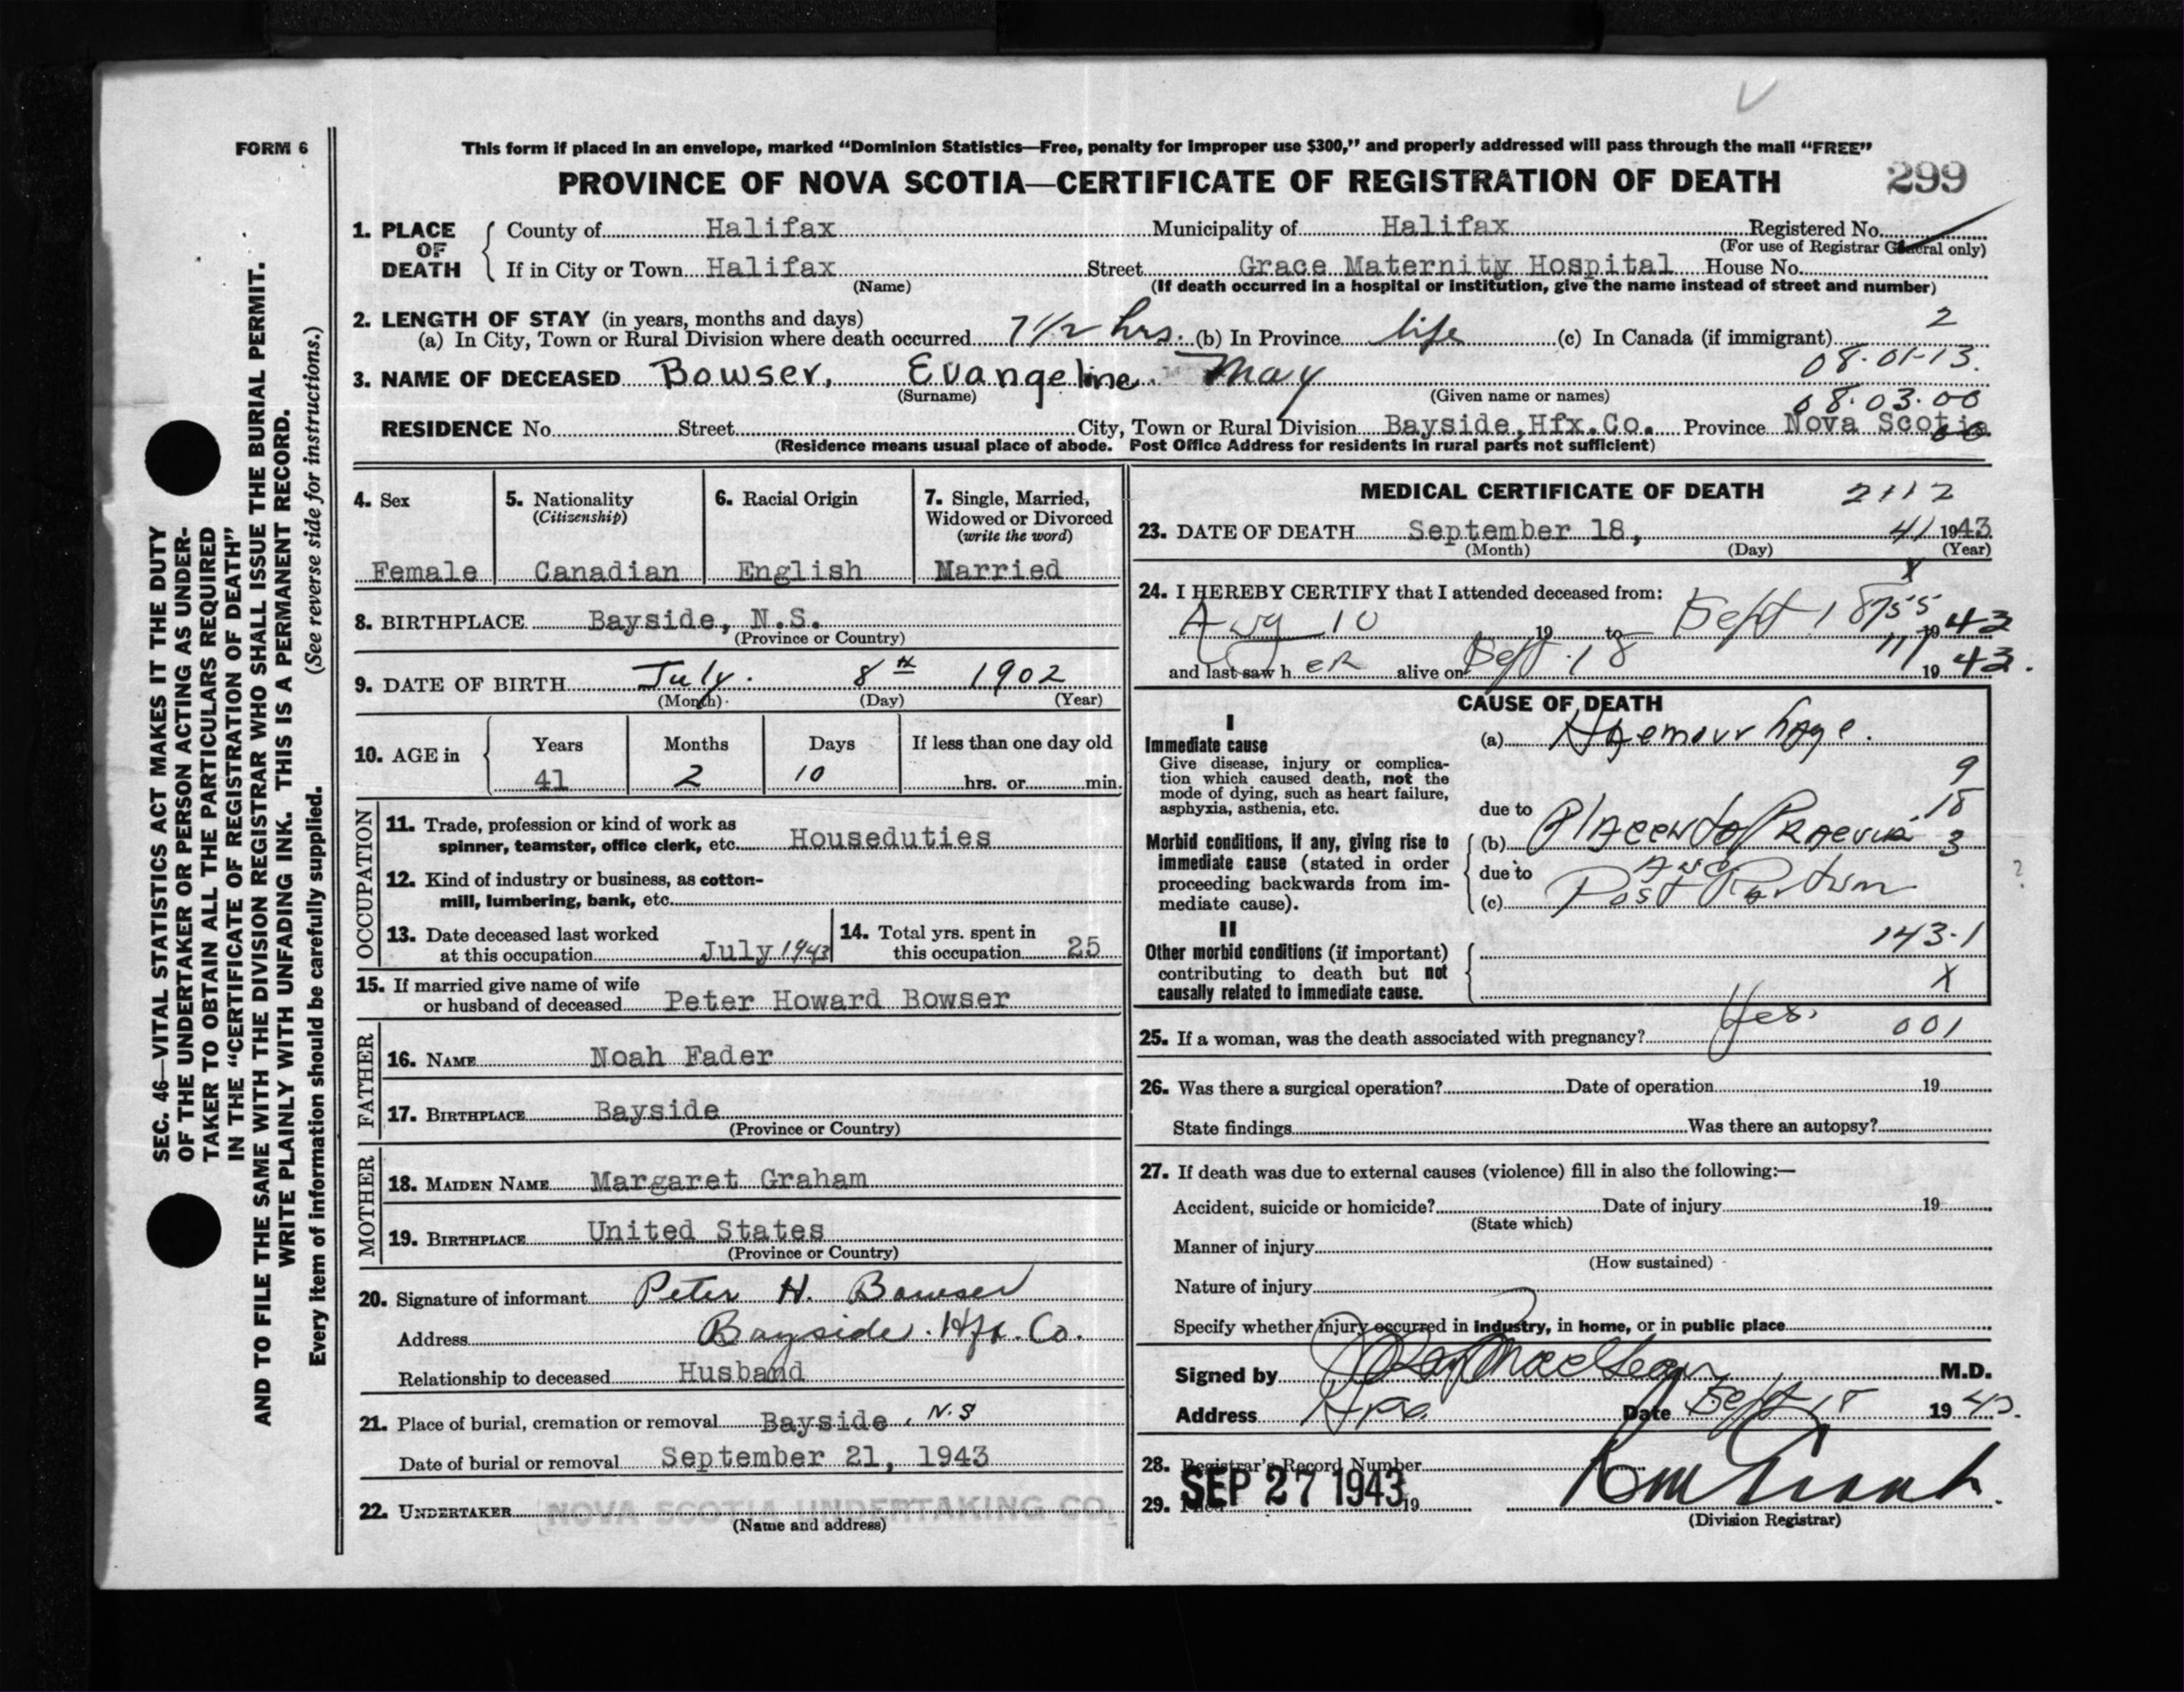 FORM 6
SEC. 46—VITAL STATISTICS ACT MAKES IT THE DUTY
OF THE UNDERTAKER OR PERSON ACTING AS UNDER-
TAKER TO OBTAIN ALL THE PARTICULARS REQUIRED
IN THE "CERTIFICATE OF REGISTRATION OF DEATH"
AND TO FILE THE SAME WITH THE DIVISION REGISTRAR WHO SHALL ISSUE THE BURIAL PERMIT.
WRITE PLAINLY WITH UNFADING INK. THIS IS A PERMANENT RECORD.
Every item of information should be carefully supplied. (See reverse side for instructions.)
This form if placed in an envelope, marked "Dominion Statistics—Free, penalty for improper use $300," and properly addressed will pass through the mail "FREE"
PROVINCE OF NOVA SCOTIA—CERTIFICATE OF REGISTRATION OF DEATH 299
1. PLACE OF DEATH County of Halifax Municipality of Halifax Registered No.
(For use of Registrar General only)
If in City or Town Halifax Street Grace Maternity Hospital House No.
(Name) (If death occurred in a hospital or institution, give the name instead of street and number)
2. LENGTH OF STAY (in years, months and days) 2
(a) In City, Town or Rural Division where death occurred 7 1/2 hrs. (b) In Province life (c) In Canada (if immigrant)
08.01-13.
3. NAME OF DECEASED Bowser, Evangeline May
(Surname) (Given name or names)
08.03.00
RESIDENCE No. Street City, Town or Rural Division Bayside, Hfx. Co. Province Nova Scotia
(Residence means usual place of abode. Post Office Address for residents in rural parts not sufficient)
4. Sex
Female
5. Nationality
(Citizenship)
Canadian
6. Racial Origin
English
7. Single, Married,
Widowed or Divorced
(write the word)
Married
8. BIRTHPLACE Bayside, N.S.
(Province or Country)
9. DATE OF BIRTH July. 8th 1902
(Month) (Day) (Year)
10. AGE in Years Months Days If less than one day old
41 2 10 hrs. or min.
OCCUPATION
11. Trade, profession or kind of work as
spinner, teamster, office clerk, etc. Houseduties
12. Kind of industry or business, as cotton-
mill, lumbering, bank, etc.
13. Date deceased last worked
at this occupation July 1943
14. Total yrs. spent in
this occupation 25
15. If married give name of wife
or husband of deceased Peter Howard Bowser
FATHER
16. NAME Noah Fader
17. BIRTHPLACE Bayside
(Province or Country)
MOTHER
18. MAIDEN NAME Margaret Graham
19. BIRTHPLACE United States
(Province or Country)
20. Signature of informant Peter H. Bowser
Address Bayside. Hfx. Co.
Relationship to deceased Husband
21. Place of burial, cremation or removal Bayside, N.S
Date of burial or removal September 21, 1943
22. UNDERTAKER NOVA SCOTIA UNDERTAKING CO.
(Name and address)
MEDICAL CERTIFICATE OF DEATH 2112
23. DATE OF DEATH September 18, 41 1943
(Month) (Day) (Year)
X
24. I HEREBY CERTIFY that I attended deceased from:
Aug 10 19 to Sept 18 1943
and last saw her alive on Sept. 18 1943.
CAUSE OF DEATH
I
Immediate cause
Give disease, injury or complica-
tion which caused death, not the
mode of dying, such as heart failure,
asphyxia, asthenia, etc.
(a) Haemorrhage.
9
18
3
due to
Morbid conditions, if any, giving rise to
immediate cause (stated in order
proceeding backwards from im-
mediate cause).
(b) Placenta Praevia
due to And
(c) Post Partum
?
II
Other morbid conditions (if important)
contributing to death but not
causally related to immediate cause.
143-1
X
25. If a woman, was the death associated with pregnancy? Yes. 001
26. Was there a surgical operation? Date of operation 19
State findings Was there an autopsy?
27. If death was due to external causes (violence) fill in also the following:—
Accident, suicide or homicide? Date of injury 19
(State which)
Manner of injury
(How sustained)
Nature of injury
Specify whether injury occurred in industry, in home, or in public place
Signed by M.D.
Address Date Sept 18 1943.
28. Registrar's Record Number
29. Filed SEP 27 1943 19
(Division Registrar)